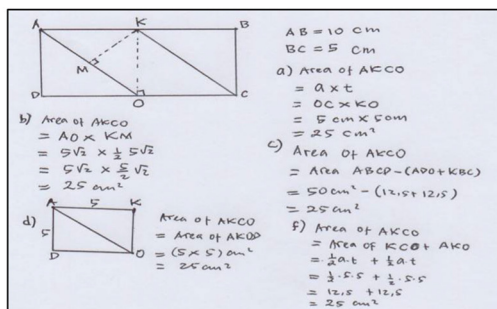 A K B
M
D O C
AB = 10 cm
BC = 5 cm
a) Area of AKCO
= a x t
= OC x KO
= 5 cm x 5 cm
= 25 cm²
b) Area of AKCO
= AO x KM
= 5√2 x 1/2 5√2
= 5√2 x 5/2 √2
= 25 cm²
c) Area of AKCO
= Area ABCD - (ADO + KBC)
= 50 cm² - (12,5 + 12,5)
= 25 cm²
d)
A 5 K
5
D O
Area of AKCO
= Area of AKOD
= (5 x 5) cm²
= 25 cm²
f) Area of AKCO
= Area of KCO + AKO
= 1/2 a.t + 1/2 a.t
= 1/2 . 5 . 5 + 1/2 . 5 . 5
= 12,5 + 12,5
= 25 cm²